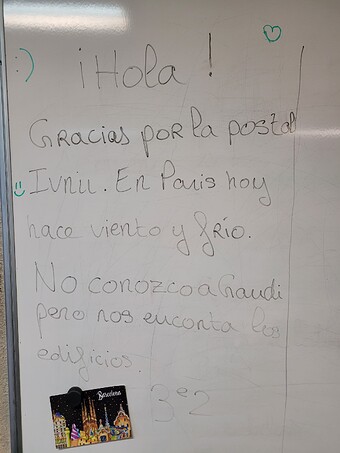 :) ¡Hola!
Gracias por la postal
Ivniu. En Paris hoy
hace viento y frío.
No conozco a Gaudi
pero nos enconta los
edificios.
3e2
Barcelona